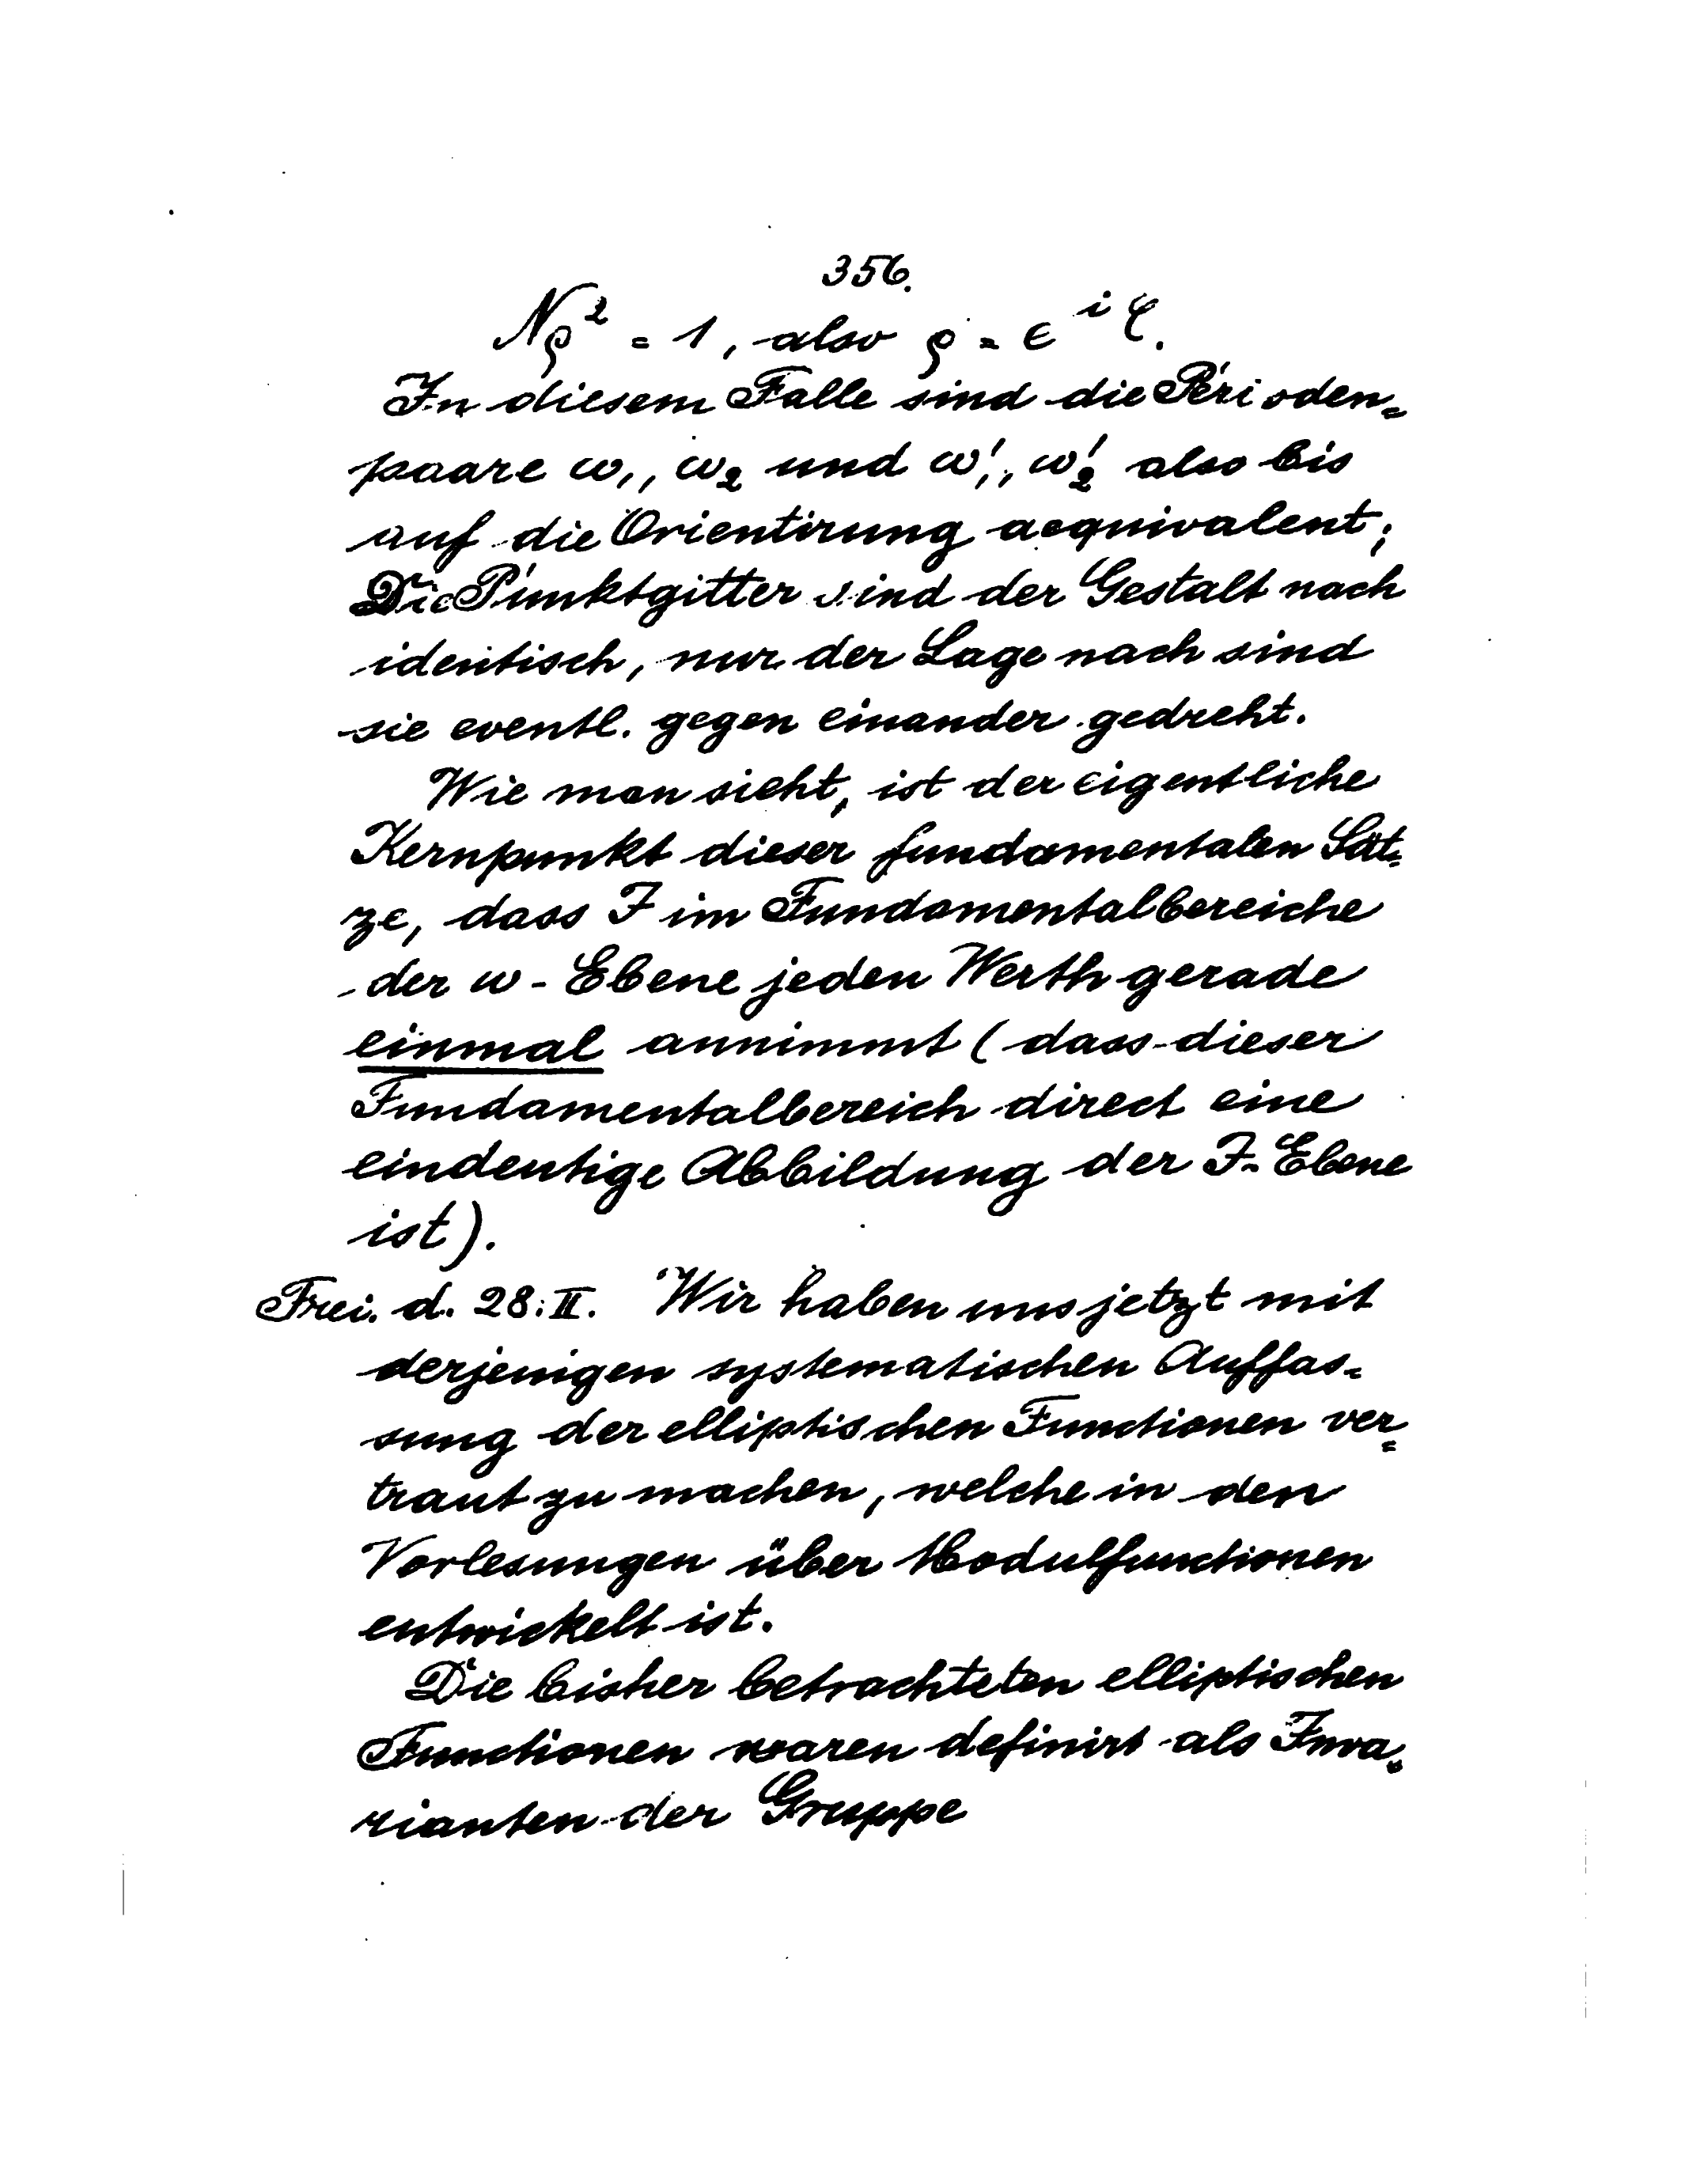 356.
Nρ² = 1, also ρ = e^{iφ}.
In diesem Falle sind die Perioden=
paare ω₁, ω₂ und ω₁', ω₂' also bis
auf die Orientirung aequivalent;
Die Punktgitter sind der Gestalt nach
identisch, nur der Lage nach sind
sie eventl. gegen einander gedreht.
Wie man sieht, ist der eigentliche
Kernpunkt dieser fundamentalen Sät=
ze, dass J im Fundamentalbereiche
der ω-Ebene jeden Werth gerade
einmal annimmt (dass dieser
Fundamentalbereich direct eine
eindeutige Abbildung der J-Ebene
ist).
Frei. d. 28. II. Wir haben uns jetzt mit
derjenigen systematischen Auffas=
sung der elliptischen Functionen ver=
traut zu machen, welche in den
Vorlesungen über Modulfunctionen
entwickelt ist.
Die bisher betrachteten elliptischen
Functionen waren definirt als Inva=
rianten der Gruppe